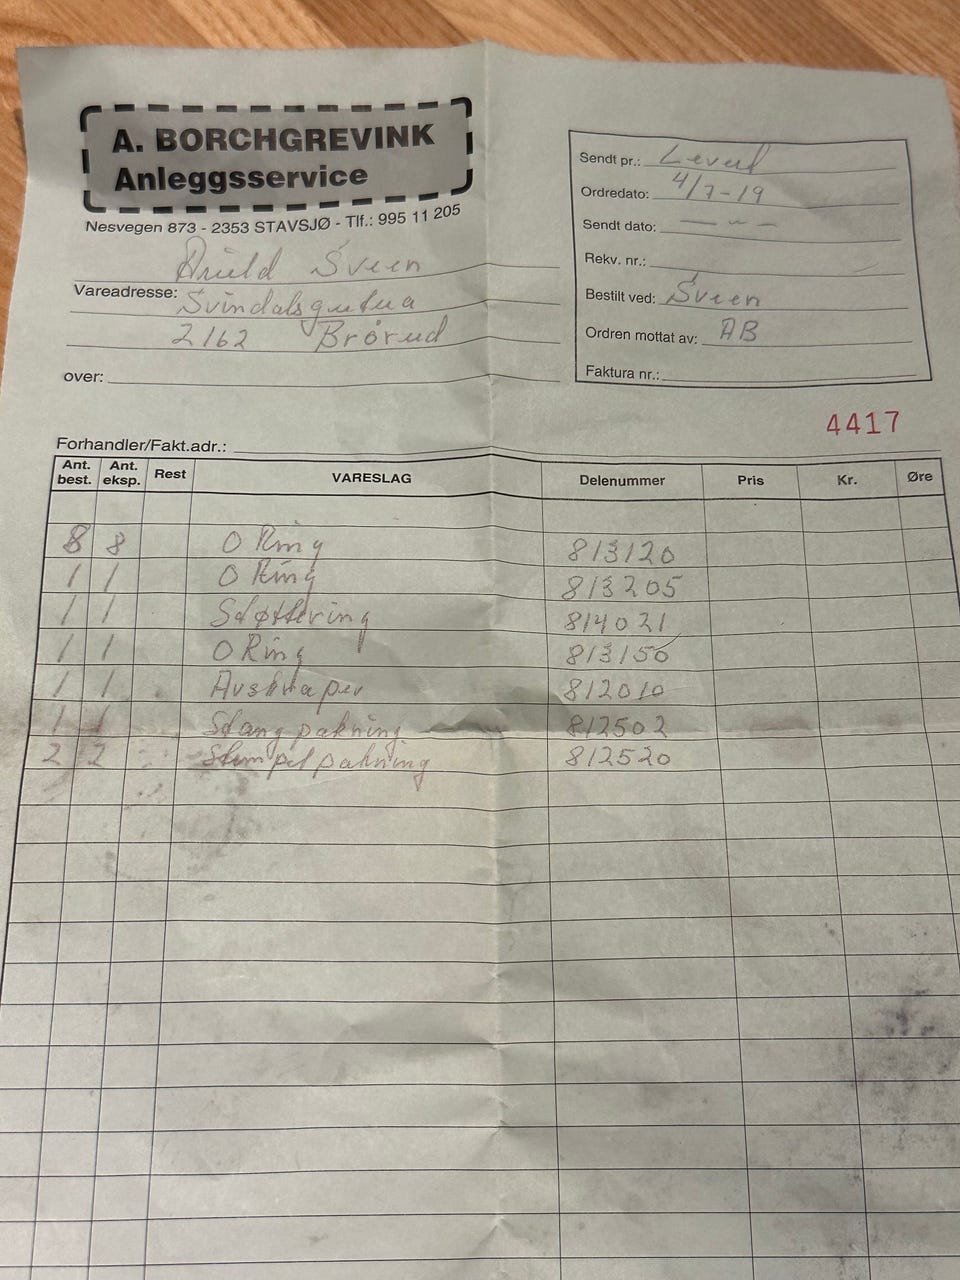 A. BORCHGREVINK
Anleggsservice
Nesvegen 873 - 2353 STAVSJØ - Tlf.: 995 11 205
Sveen
Vareadresse: Svindalsgutua
2162 Brårud
over:
Sendt pr.: Leverd
Ordredato: 4/7-19
Sendt dato: — " —
Rekv. nr.:
Bestilt ved: Sveen
Ordren mottat av: AB
Faktura nr.:
4417
Forhandler/Fakt.adr.:
Ant. best. Ant. eksp. Rest VARESLAG Delenummer Pris Kr. Øre
8 8 O Ring 813120
1 1 O Ring 813205
1 1 Støttering 814021
1 1 O Ring 813150
1 1 Avskraper 812010
1 1 Stangpakning 812502
2 2 Stempelpakning 812520